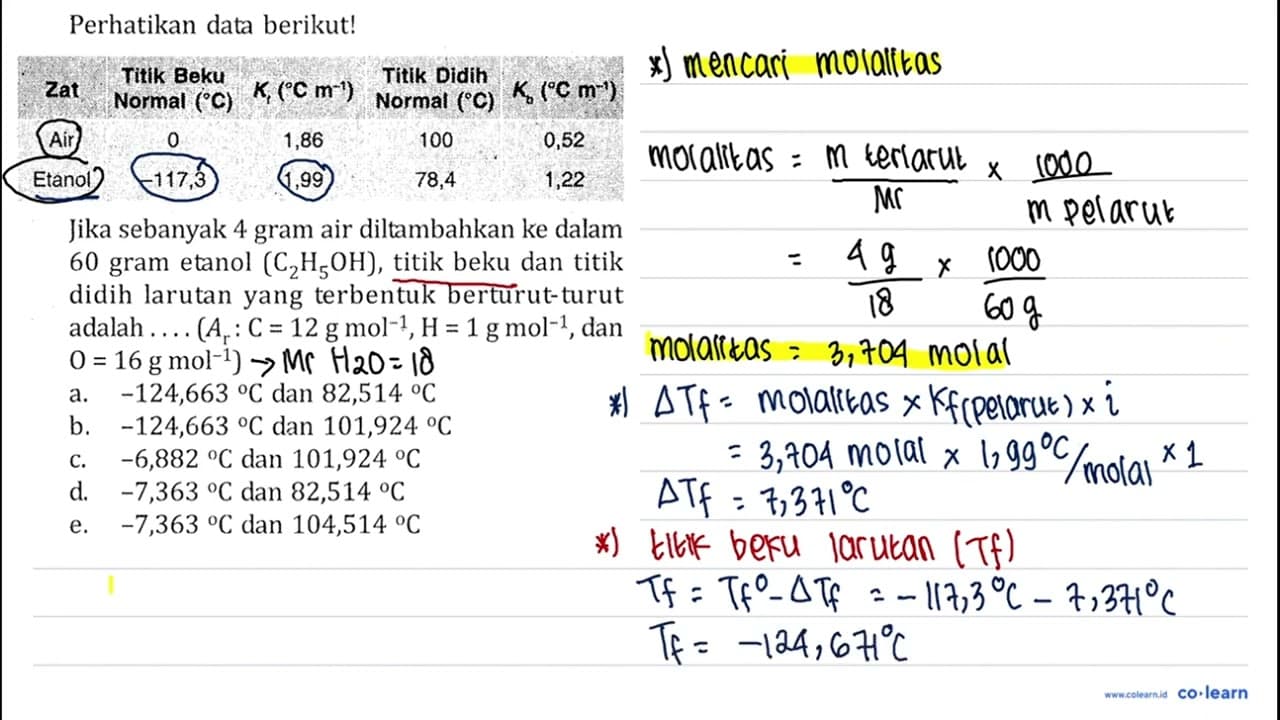 Perhatikan data berikut!
Zat Titik Beku Normal (°C) Kf (°C m⁻¹) Titik Didih Normal (°C) Kb (°C m⁻¹)
Air 0 1,86 100 0,52
Etanol –117,3 1,99 78,4 1,22
Jika sebanyak 4 gram air diltambahkan ke dalam
60 gram etanol (C₂H₅OH), titik beku dan titik
didih larutan yang terbentuk berturut-turut
adalah . . . . (Aᵣ : C = 12 g mol⁻¹, H = 1 g mol⁻¹, dan
O = 16 g mol⁻¹) → Mr H2O = 18
a. –124,663 °C dan 82,514 °C
b. –124,663 °C dan 101,924 °C
c. –6,882 °C dan 101,924 °C
d. –7,363 °C dan 82,514 °C
e. –7,363 °C dan 104,514 °C
*) mencari molalitas
molalitas = m terlarut / Mr × 1000 / m pelarut
= 4 g / 18 × 1000 / 60 g
molalitas = 3,704 molal
*) ΔTf = molalitas × Kf(pelarut) × i
= 3,704 molal × 1,99°C/molal × 1
ΔTf = 7,371°C
*) titik beku larutan (Tf)
Tf = Tf° - ΔTf = -117,3°C - 7,371°C
Tf = -124,671°C
www.colearn.id co·learn